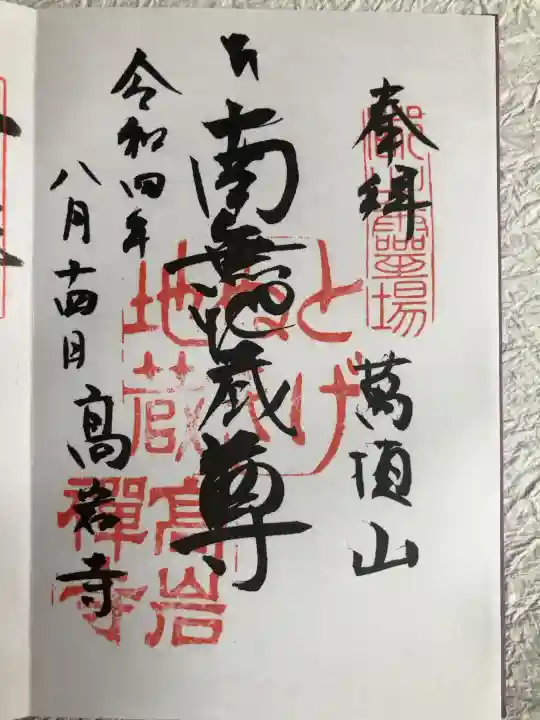 奉拝
萬頂山
南無地蔵尊
令和四年
八月十四日
高岩寺
とげ
地蔵
高岩
禅寺
霊場